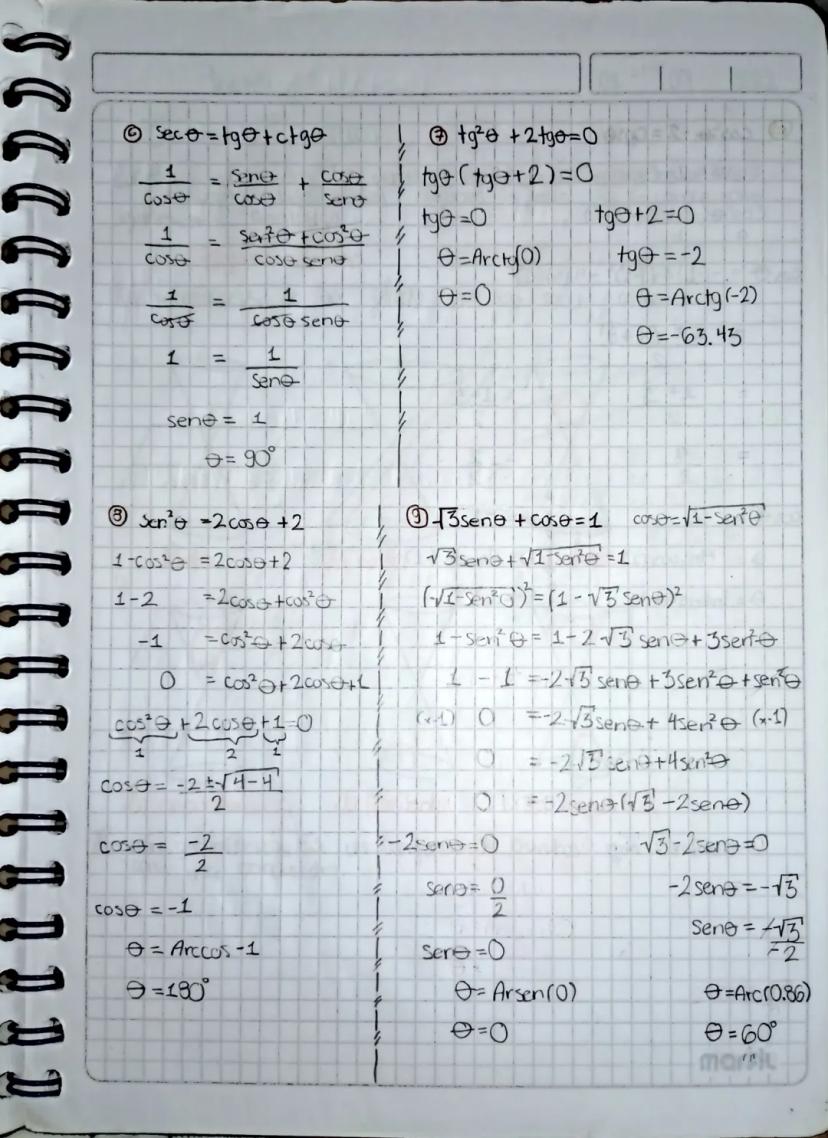 ⑥ Secθ = tgθ + ctgθ
1/cosθ = senθ/cosθ + cosθ/senθ
1/cosθ = sen²θ + cos²θ/cosθ senθ
1/cosθ = 1/cosθ senθ
1 = 1/senθ
senθ = 1
θ = 90°
⑦ tg²θ + 2tgθ = 0
tgθ (tgθ + 2) = 0
tgθ = 0 tgθ + 2 = 0
θ = Arctg(0) tgθ = -2
θ = 0 θ = Arctg(-2)
θ = -63.43
⑧ sen²θ = 2cosθ + 2
1 - cos²θ = 2cosθ + 2
1 - 2 = 2cosθ + cos²θ
-1 = cos²θ + 2cosθ
0 = cos²θ + 2cosθ + 1
cos²θ + 2cosθ + 1 = 0
1 2 1
cosθ = -2 ± √4 - 4/2
cosθ = -2/2
cosθ = -1
θ = Arccos -1
θ = 180°
⑨ √3 senθ + cosθ = 1 cosθ = √1 - sen²θ
√3 senθ + √1 - sen²θ = 1
(√1 - sen²θ)² = (1 - √3 senθ)²
1 - sen²θ = 1 - 2√3 senθ + 3sen²θ
1 - 1 = -2√3 senθ + 3sen²θ + sen²θ
(x-1) 0 = -2√3 senθ + 4sen²θ (x-1)
0 = -2√3 senθ + 4sen²θ
0 = -2senθ (√3 - 2senθ)
-2senθ = 0 √3 - 2senθ = 0
senθ = 0/2 -2senθ = -√3
senθ = 0 senθ = -√3/-2
θ = Arsen(0) θ = Arc(0.86)
θ = 0 θ = 60°